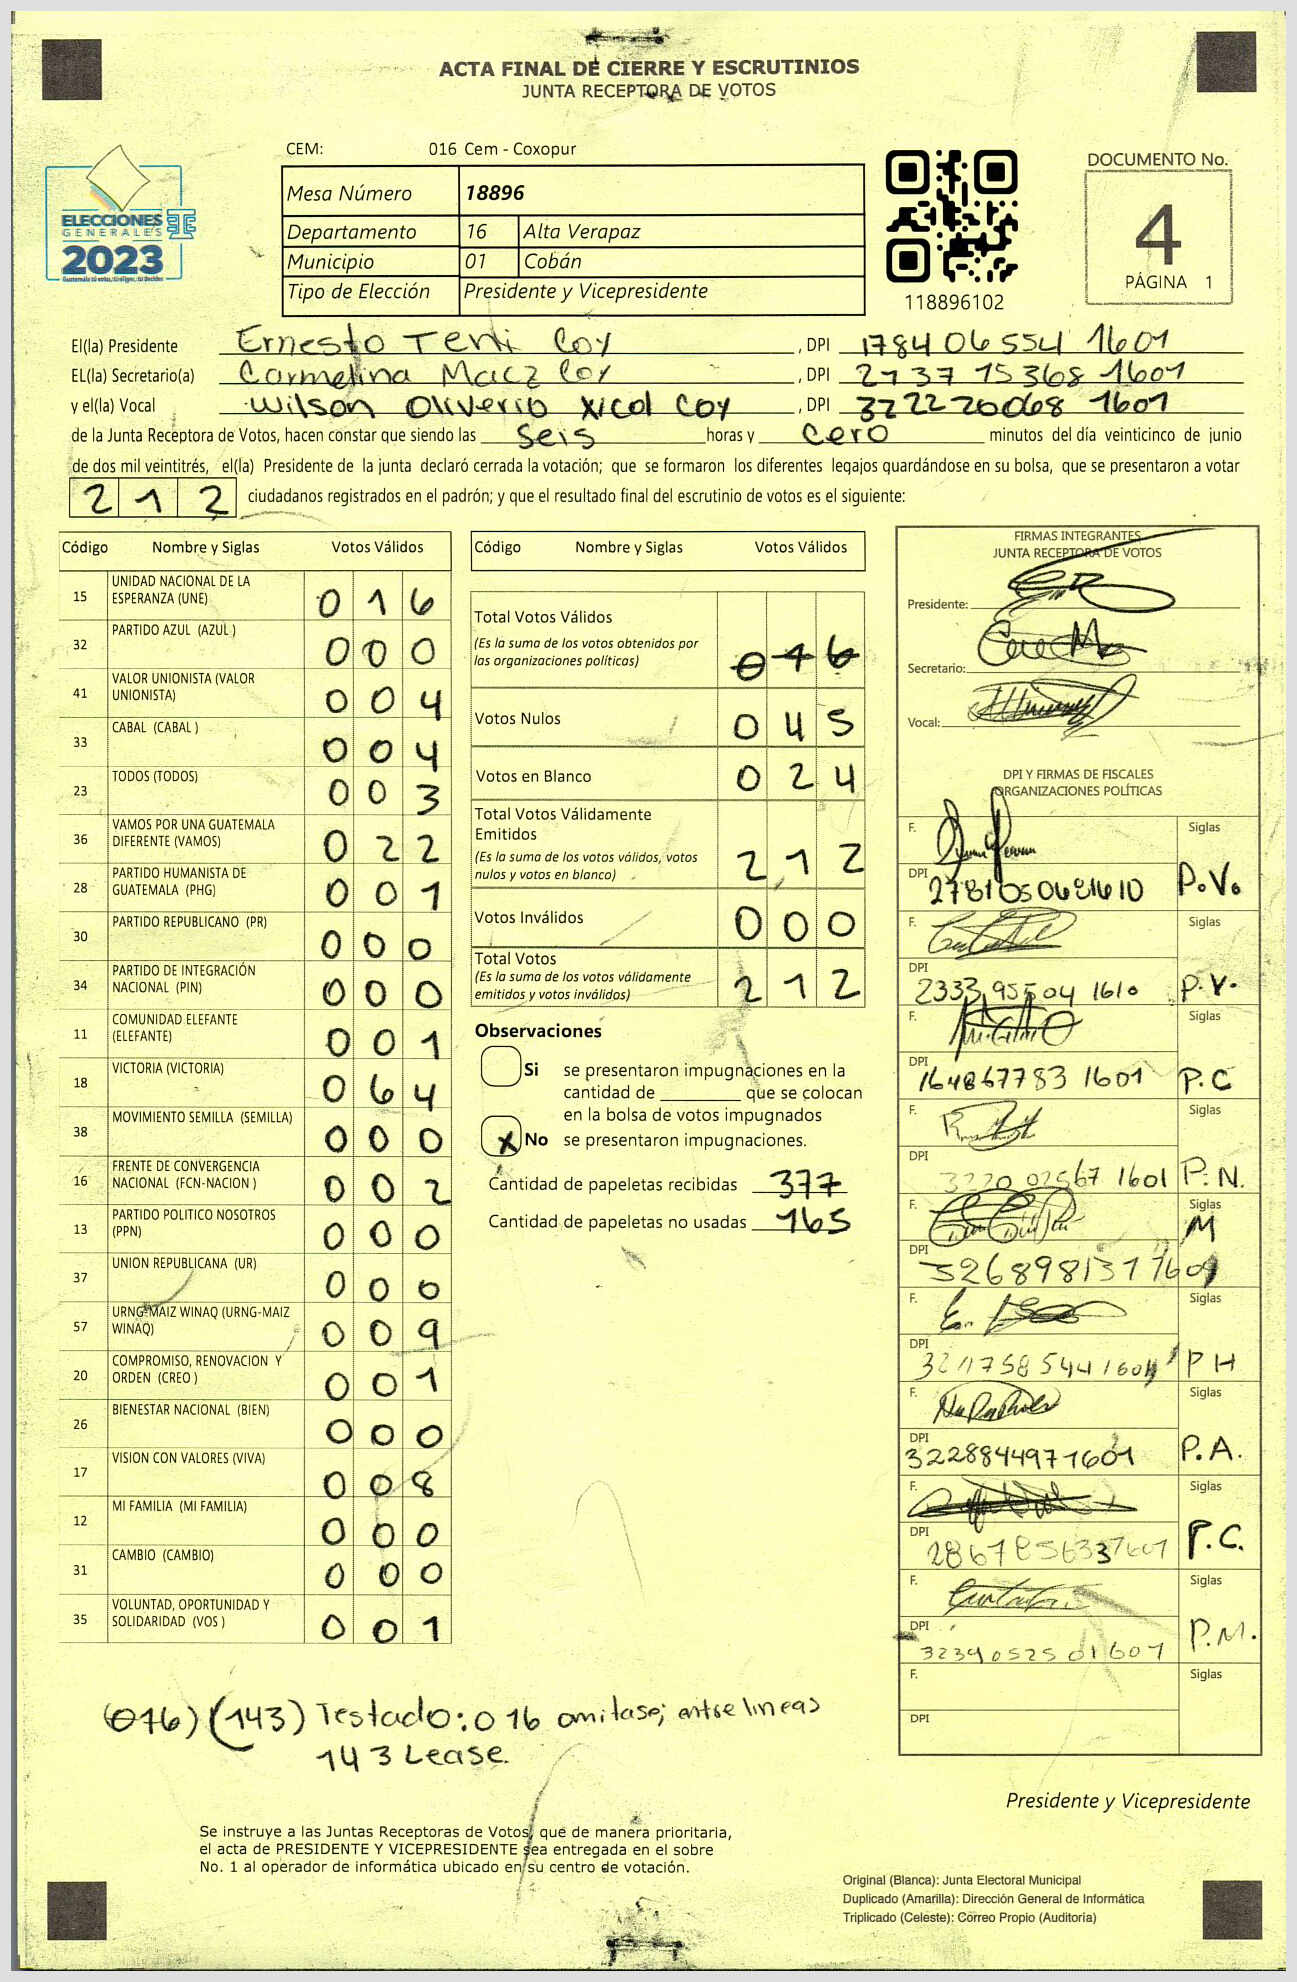 ACTA FINAL DE CIERRE Y ESCRUTINIOS
JUNTA RECEPTORA DE VOTOS
ELECCIONES
GENERALES
2023
CEM: 016 Cem - Coxopur
Mesa Número 18896
Departamento 16 Alta Verapaz
Municipio 01 Cobán
Tipo de Elección Presidente y Vicepresidente
118896102
DOCUMENTO No.
4
PÁGINA 1
El(la) Presidente Ernesto Teni Coy , DPI 178406554 1601
EL(la) Secretario(a) Carmelina Macz Coy , DPI 2737 15368 1601
y el(la) Vocal Wilson Oliverio Xicol Coy , DPI 322220068 1601
de la Junta Receptora de Votos, hacen constar que siendo las seis horas y cero minutos del día veinticinco de junio
de dos mil veintitrés, el(la) Presidente de la junta declaró cerrada la votación; que se formaron los diferentes legajos guardándose en su bolsa, que se presentaron a votar
212 ciudadanos registrados en el padrón; y que el resultado final del escrutinio de votos es el siguiente:
Código Nombre y Siglas Votos Válidos
15 UNIDAD NACIONAL DE LA ESPERANZA (UNE) 016
32 PARTIDO AZUL (AZUL ) 000
41 VALOR UNIONISTA (VALOR UNIONISTA) 004
33 CABAL (CABAL ) 004
23 TODOS (TODOS) 003
36 VAMOS POR UNA GUATEMALA DIFERENTE (VAMOS) 022
28 PARTIDO HUMANISTA DE GUATEMALA (PHG) 001
30 PARTIDO REPUBLICANO (PR) 000
34 PARTIDO DE INTEGRACIÓN NACIONAL (PIN) 000
11 COMUNIDAD ELEFANTE (ELEFANTE) 001
18 VICTORIA (VICTORIA) 064
38 MOVIMIENTO SEMILLA (SEMILLA) 000
16 FRENTE DE CONVERGENCIA NACIONAL (FCN-NACION ) 002
13 PARTIDO POLITICO NOSOTROS (PPN) 000
37 UNION REPUBLICANA (UR) 000
57 URNG-MAIZ WINAQ (URNG-MAIZ WINAQ) 009
20 COMPROMISO, RENOVACION Y ORDEN (CREO ) 001
26 BIENESTAR NACIONAL (BIEN) 000
17 VISION CON VALORES (VIVA) 008
12 MI FAMILIA (MI FAMILIA) 000
31 CAMBIO (CAMBIO) 000
35 VOLUNTAD, OPORTUNIDAD Y SOLIDARIDAD (VOS ) 001
Código Nombre y Siglas Votos Válidos
Total Votos Válidos
(Es la suma de los votos obtenidos por las organizaciones políticas) 016
Votos Nulos 045
Votos en Blanco 024
Total Votos Válidamente Emitidos
(Es la suma de los votos válidos, votos nulos y votos en blanco) 212
Votos Inválidos 000
Total Votos
(Es la suma de los votos válidamente emitidos y votos inválidos) 212
Observaciones
Si se presentaron impugnaciones en la
cantidad de ________ que se colocan
en la bolsa de votos impugnados
X No se presentaron impugnaciones.
Cantidad de papeletas recibidas 377
Cantidad de papeletas no usadas 165
FIRMAS INTEGRANTES
JUNTA RECEPTORA DE VOTOS
Presidente:
Secretario:
Vocal:
DPI Y FIRMAS DE FISCALES
ORGANIZACIONES POLÍTICAS
F. Siglas
DPI 2781050681610 P.V.
F. Siglas
DPI 2333 95504 1610 P.V.
F. Siglas
DPI 164867783 1601 P.C
F. Siglas
DPI 3220 02567 1601 P.N.
F. Siglas
DPI M
F. Siglas
DPI PH
F. Siglas
DPI 3228844971601 P.A.
F. Siglas
DPI P.C.
F. Siglas
DPI 3239052501607 P.M.
F. Siglas
DPI
(016) (143) Testado: 016 omitase; entre lineas
143 Lease.
Presidente y Vicepresidente
Se instruye a las Juntas Receptoras de Votos, que de manera prioritaria,
el acta de PRESIDENTE Y VICEPRESIDENTE sea entregada en el sobre
No. 1 al operador de informática ubicado en su centro de votación.
Original (Blanca): Junta Electoral Municipal
Duplicado (Amarilla): Dirección General de Informática
Triplicado (Celeste): Correo Propio (Auditoría)